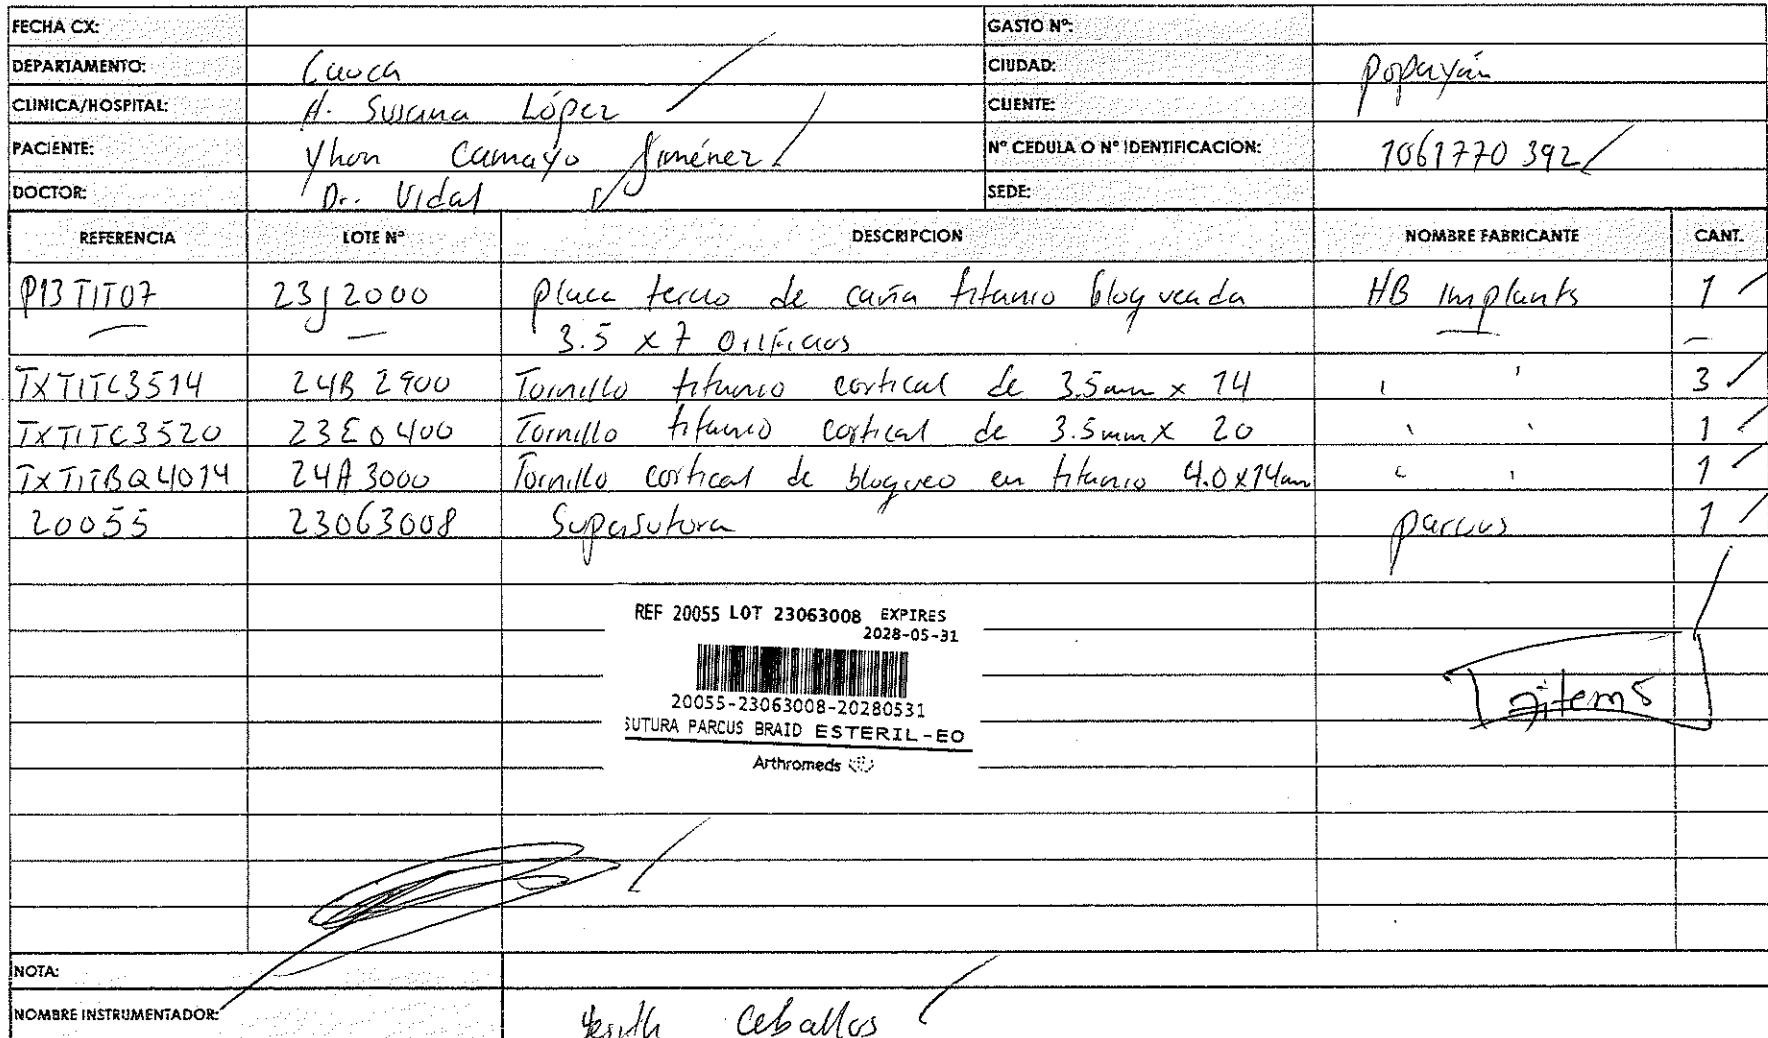 FECHA CX: GASTO Nº:
DEPARTAMENTO: Cauca CIUDAD: Popayán
CLINICA/HOSPITAL: H. Susana López CLIENTE:
PACIENTE: Yhon Camayo Jiménez Nº CEDULA O Nº IDENTIFICACION: 1061770392
DOCTOR: Dr. Vidal SEDE:
REFERENCIA LOTE Nº DESCRIPCION NOMBRE FABRICANTE CANT.
P13TIT07 23J2000 placa tercio de caña titanio bloqueada HB Implants 1
3.5 x 7 Orificios
TXTITC3514 24B2900 Tornillo titanio cortical de 3.5mm x 14 " " 3
TXTITC3520 23E0400 Tornillo titanio cortical de 3.5mm x 20 " " 1
TXTITBQ4014 24A3000 Tornillo cortical de bloqueo en titanio 4.0x14mm " " 1
20055 23063008 Supersutura parcus 1
REF 20055 LOT 23063008 EXPIRES
2028-05-31
20055-23063008-20280531
SUTURA PARCUS BRAID ESTERIL-EO
Arthromeds
items
NOTA:
NOMBRE INSTRUMENTADOR: Ceballos